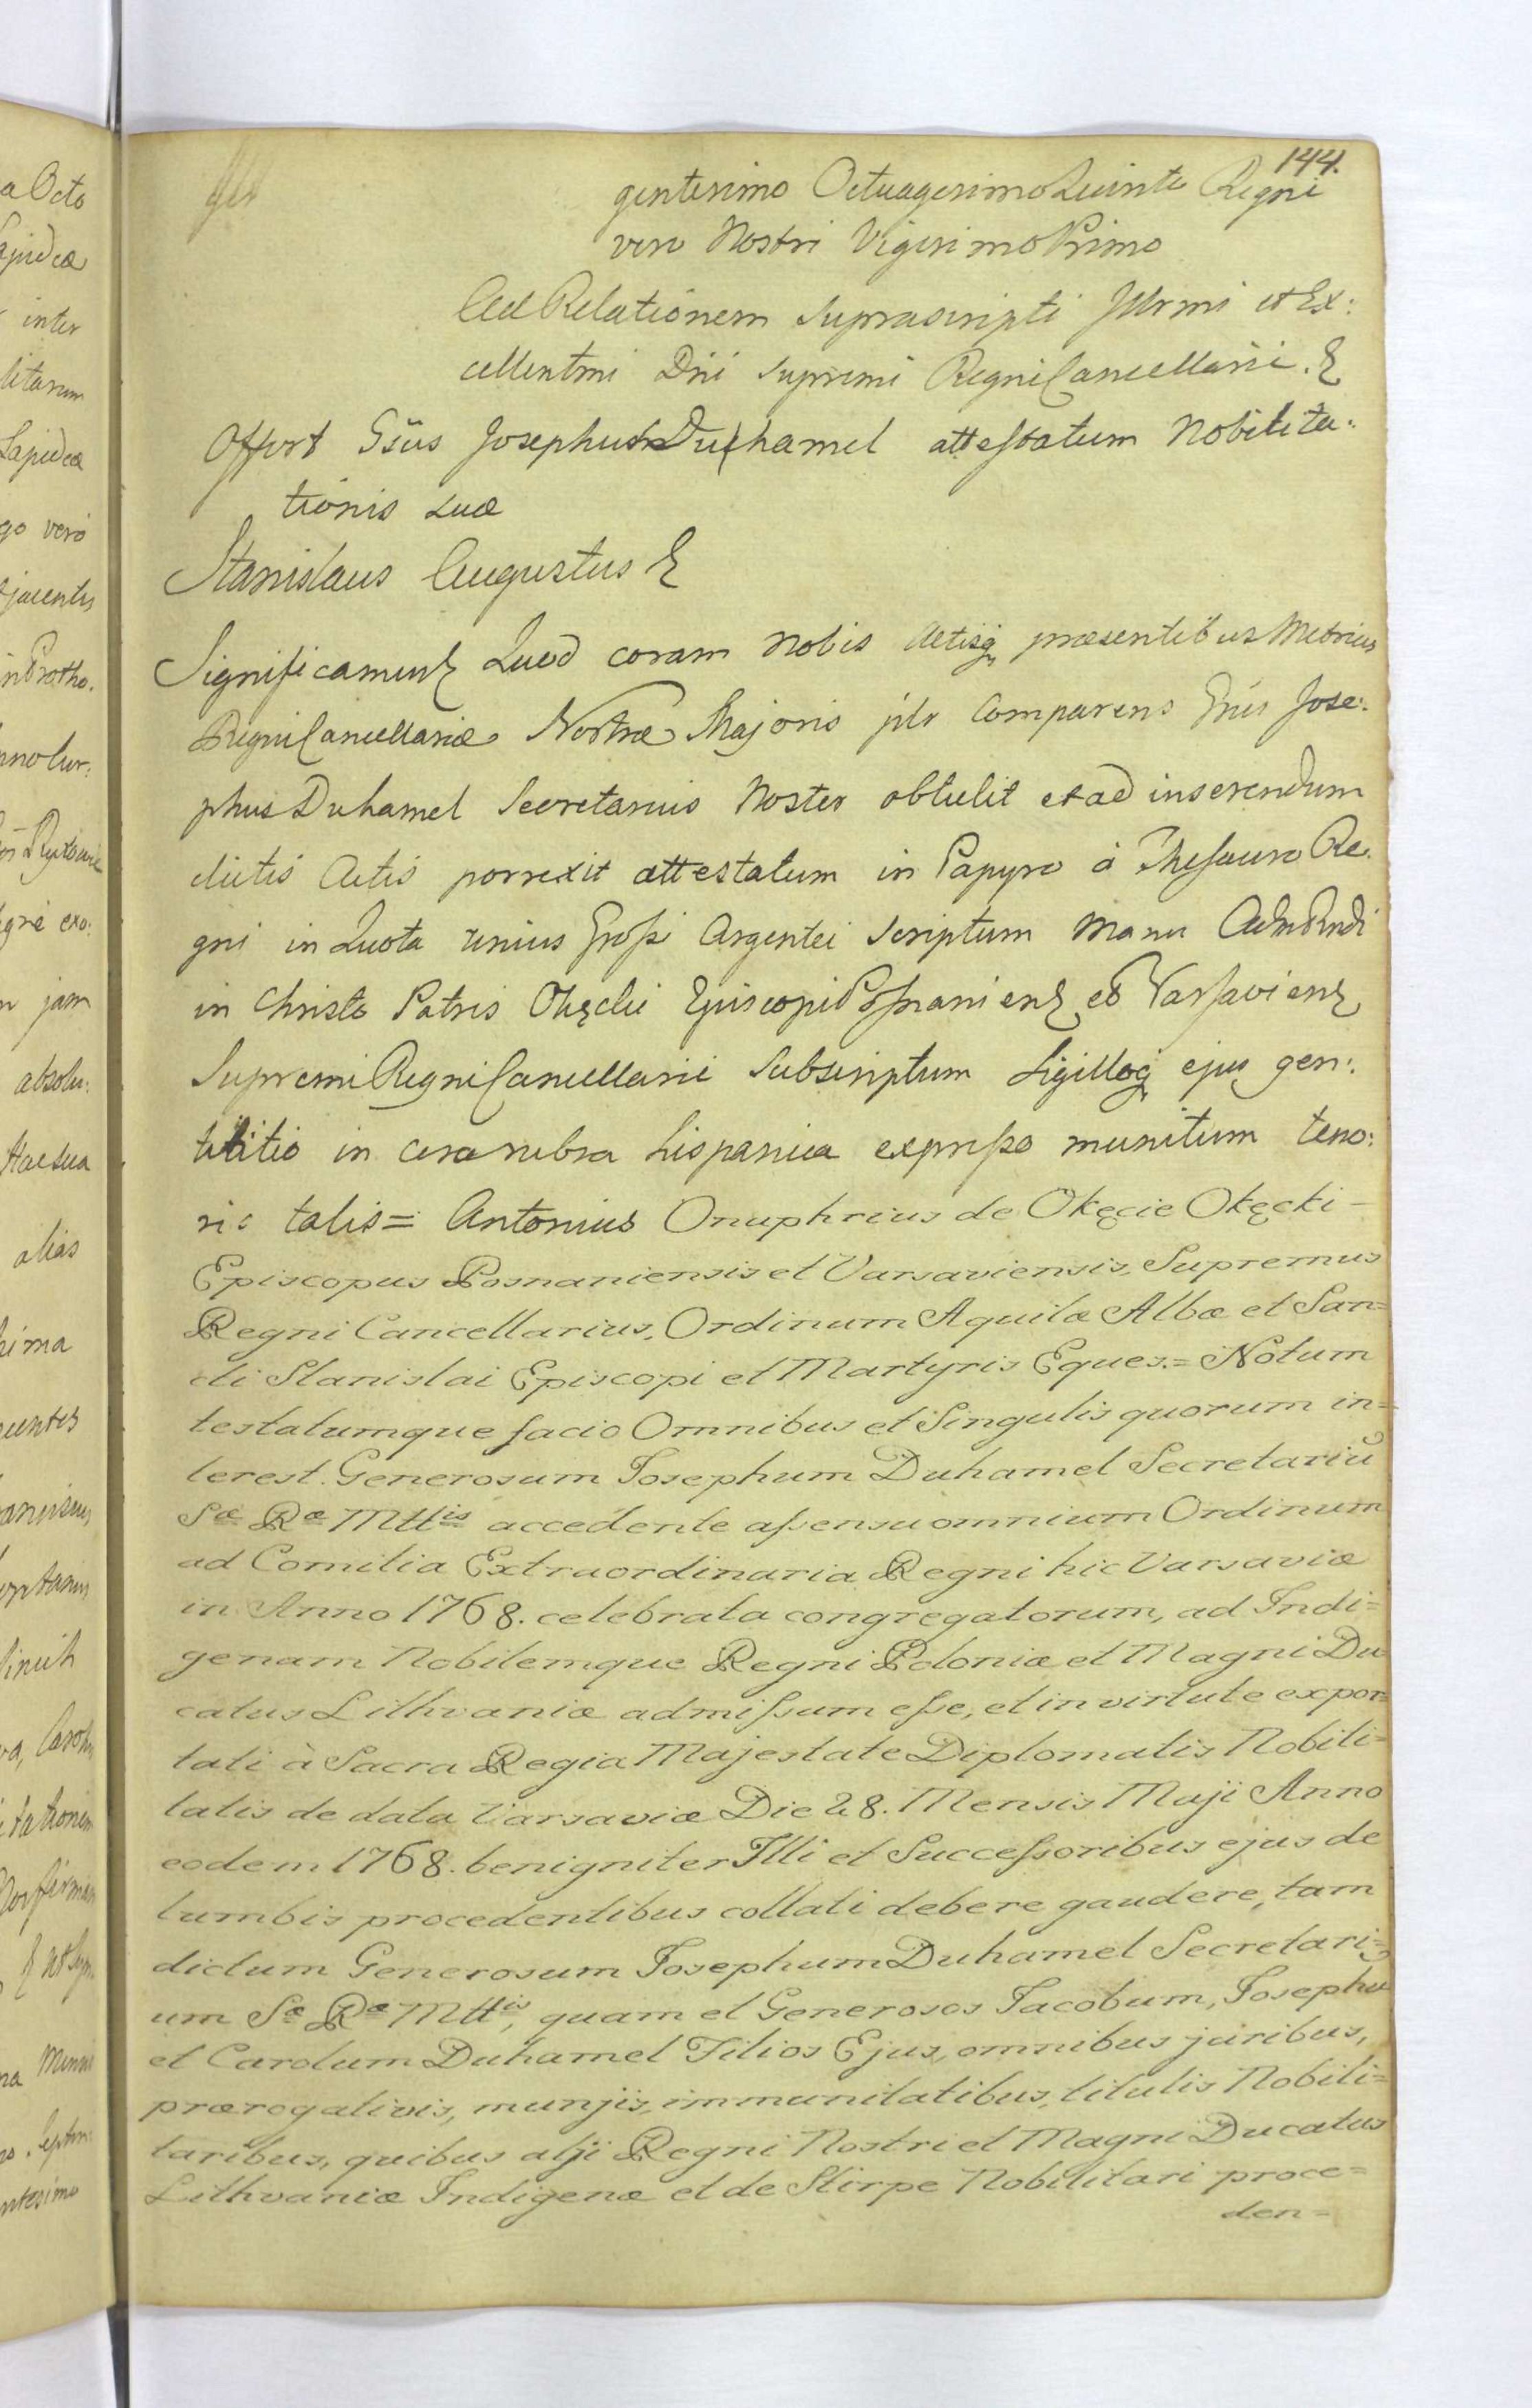 144.
gentesimo Octuagesimo Quinto Regni
vero Nostri Vigesimo Primo
Ad Relationem suprascripti Jllrmi et Ex:
cellentmi Dni supremi Regni Cancellarii.
Offert Gsus Josephus Duhamel attestatum Nobilita:
tionis suæ
Stanislaus Augustus
Significamus Quod coram nobis Actisq præsentibus Metrices
Regni Cancellariæ Nostræ Majoris plr Comparens Gnus Jose:
phus Duhamel Secretarius Noster obtulit et ad inserendum
dictis Actis porrexit attestatum in Papyro à Thesauro Re:
gni in Quota unius Grossi Argentei scriptum Manu AdmRndi
in Christo Patris Okęcki Episcopi Posnaniens et Varsaviens
Supremi Regni Cancellarii Subscriptum Sigilloq ejus gen:
tilitio in cera rubra hispanica expresso munitum teno:
ris talis= Antonius Onuphrius de Okęcie Okęcki –
Episcopus Posnaniensis et Varsaviensis, Supremus
Regni Cancellarius, Ordinum Aquilæ Albæ et San=
cti Stanislai Episcopi et Martyris Eques.= Notum
testatumque facio Omnibus et Singulis quorum in=
terest. Generosum Josephum Duhamel Secretariũ
Sæ Ræ Mttis accedente assensu omnium Ordinum
ad Comitia Extraordinaria Regni hic Varsaviæ
in Anno 1768. celebrata congregatorum, ad Indi=
genam Nobilemque Regni Poloniæ et Magni Du
catus Lithvaniæ admissum esse, et in virtute expor=
tati à Sacra Regia Majestate Diplomatis Nobili=
tatis de data Varsaviæ Die 28. Mensis Maji Anno
eodem 1768. benigniter Illi et Successoribus ejus de
lumbis procedentibus collati debere gaudere, tam
dictum Generosum Josephum Duhamel Secretari=
um Sæ Ræ Mttis, quam et Generosos Jacobum, Josephũ
et Carolum Duhamel Filios Ejus, omnibus juribus,
prærogativis, munijs, immunitatibus, titulis Nobili=
taribus, quibus alji Regni Nostri et Magni Ducatus
Lithvaniæ Indigenæ et de Stirpe Nobilitari proce=
den=